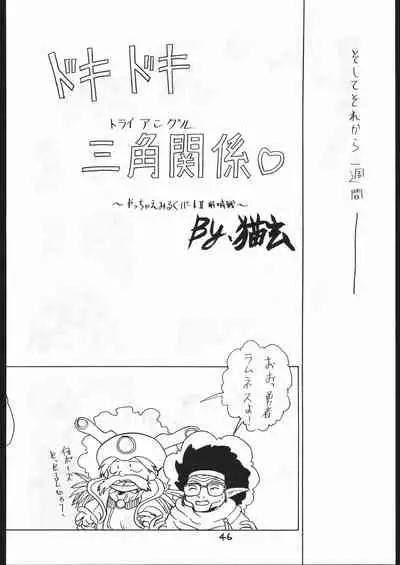 そしてそれから一週間――
ドキドキ
トライアングル
三角関係♡
～やっちゃえみるくパートII 前哨戦～
By.猫玄
おお、勇者
ラムネスよ!
46